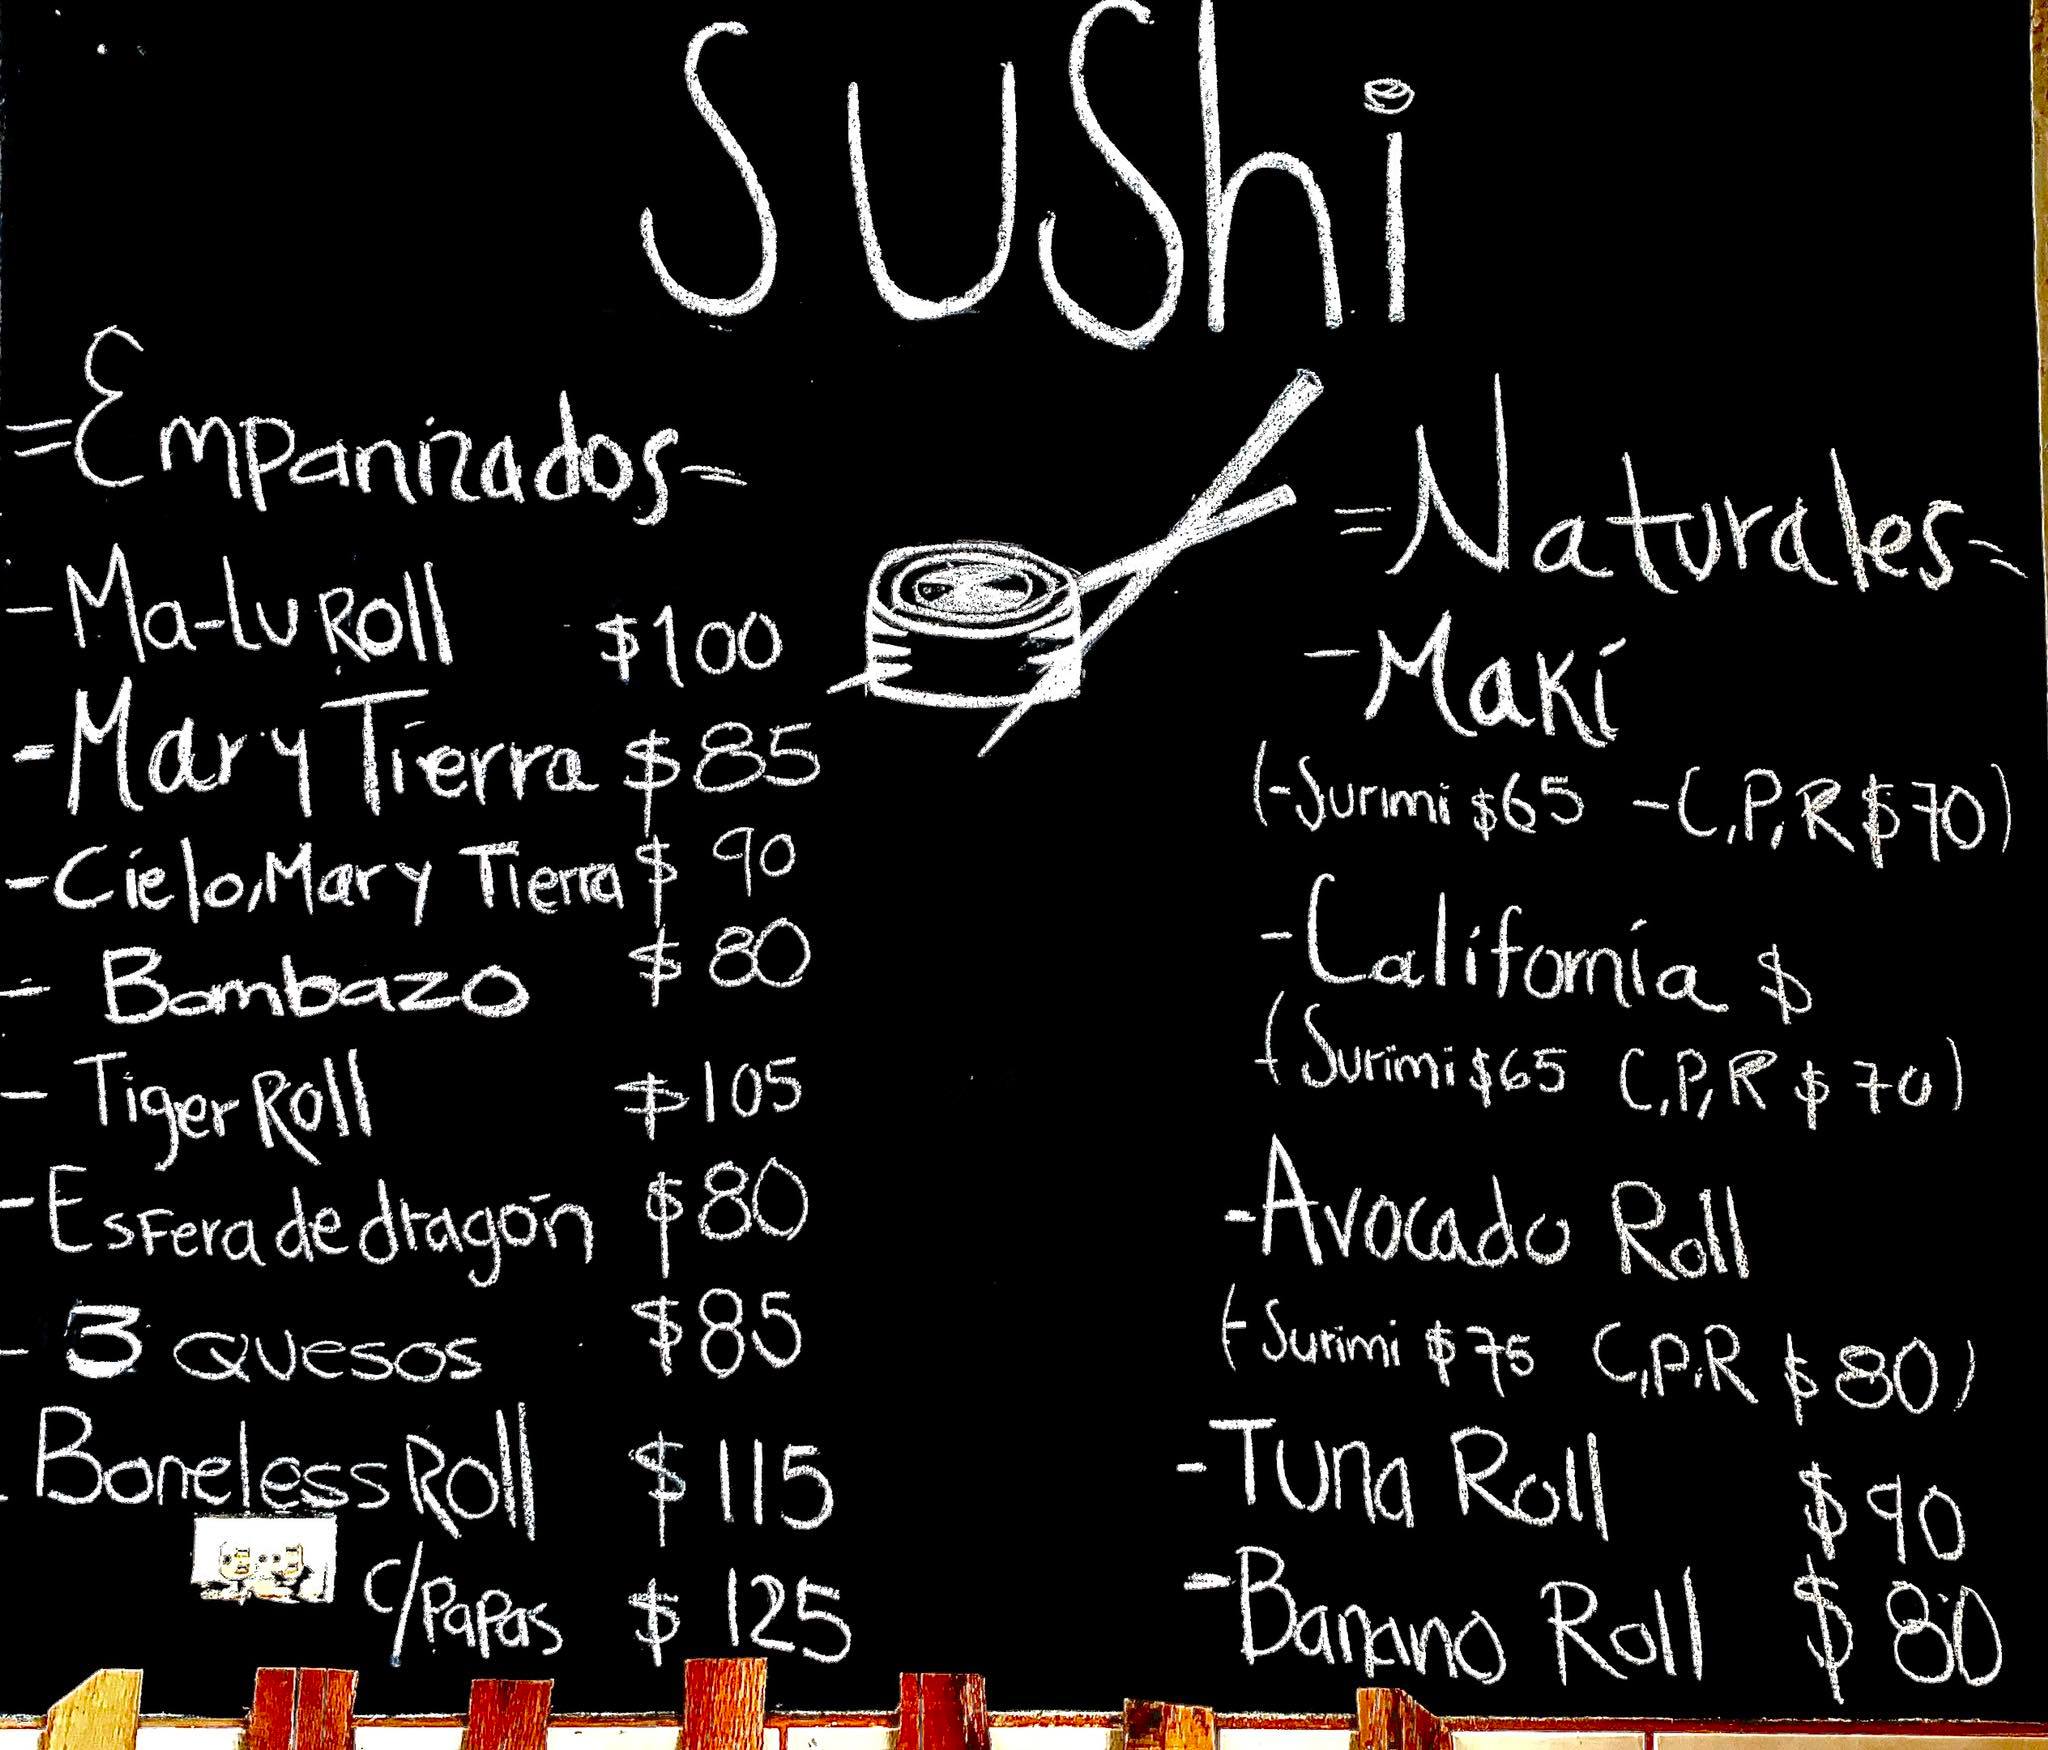 SUShi
=Empanizados=
- Ma-lu Roll $100
- Mar y Tierra $85
- Cielo, Mar y Tierra $90
- Bombazo $80
- Tiger Roll $105
- Esfera de dragón $80
- 3 Quesos $85
- Boneless Roll $115
c/papas $125
=Naturales=
- Maki
(-Surimi $65 -C,P,R $70)
- California $
(Surimi $65 C,P,R $70)
- Avocado Roll
(-Surimi $75 C,P,R $80)
- Tuna Roll $90
- Banano Roll $80